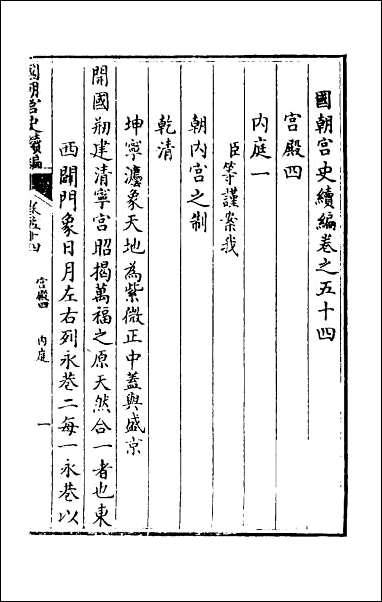 國朝宮史續編卷之五十四
宮殿四
內庭一
臣等謹案我
朝內宮之制
乾清
坤寧灋象天地為紫微正中蓋與盛京
開國剏建清寧宮昭揭萬福之原天然合一者也東
西闢門象日月左右列永巷二每一永巷以
國朝宮史續編
卷五十四
宮殿四
內庭
一